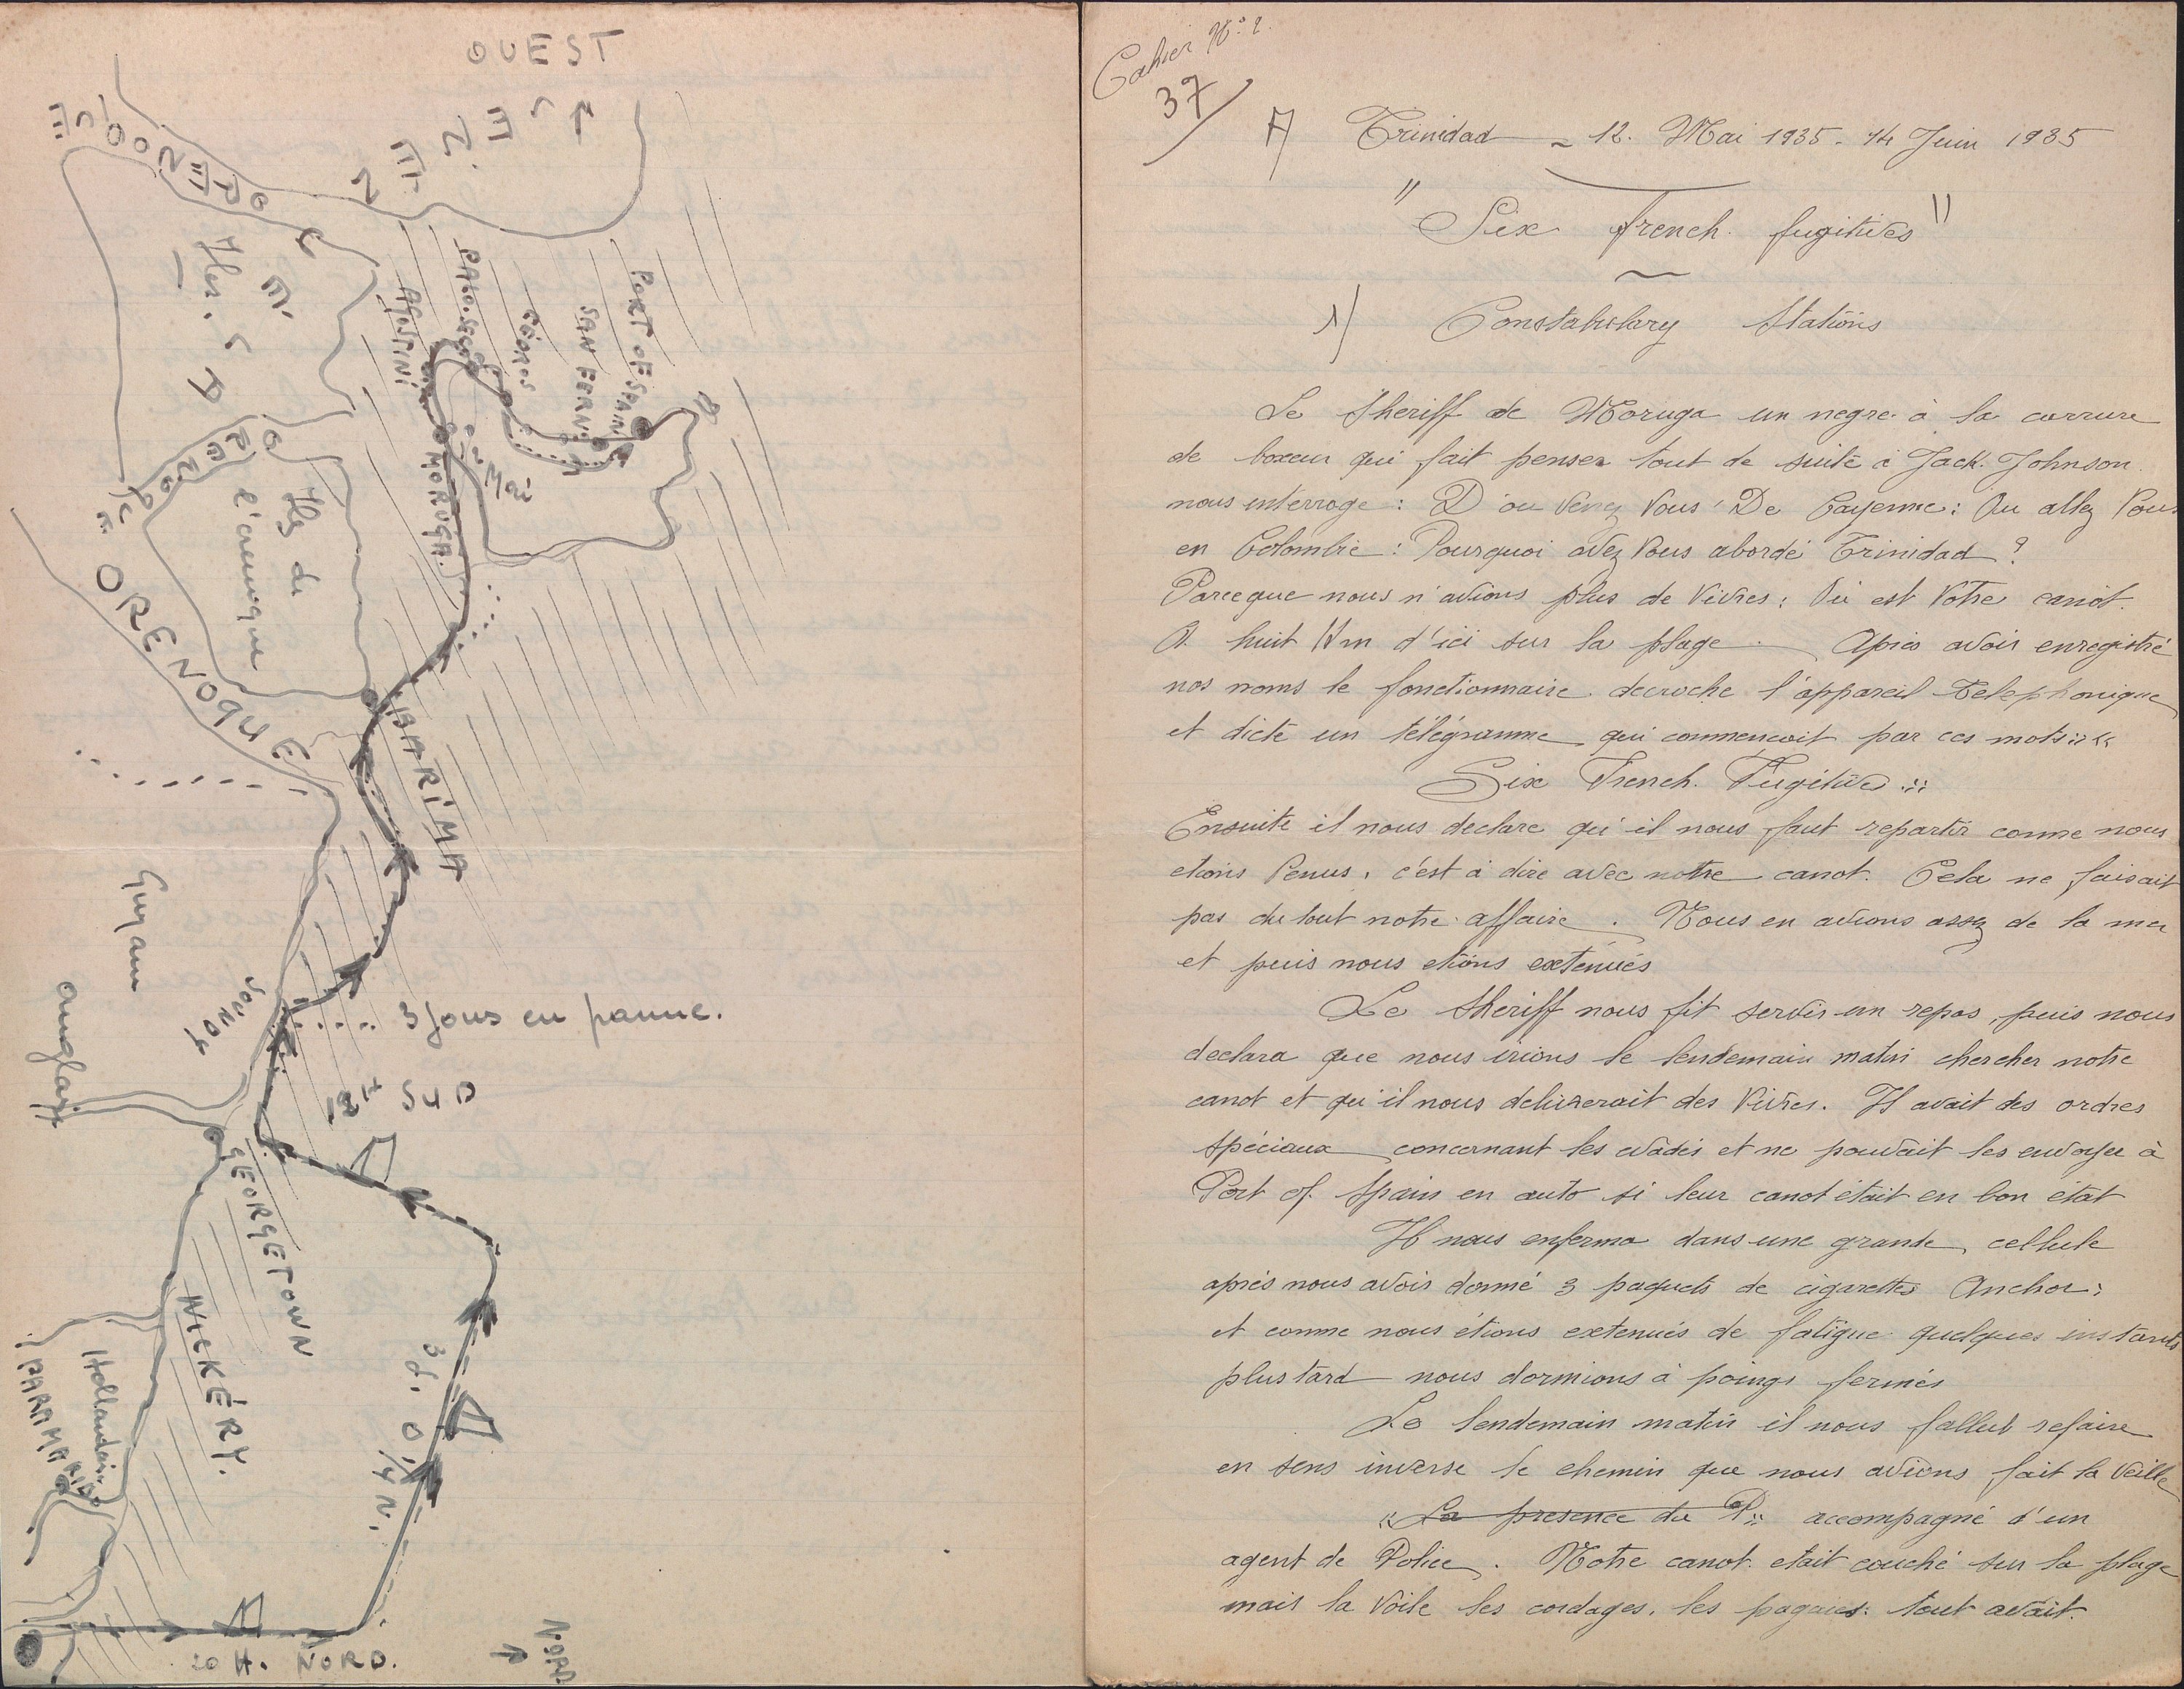 OUEST
VENEZUELA
ORENOQUE
Iles
PEDRO
Ils de
l'areuque
ORENOQUE
AGOSTINI
PALO-SECO
CÉDROS
SAN FERN.
PORT OF SPAIN
12 Mai
MORUGA.
BARIMA
Guyane
anglaise
3 Jours en panne.
12H SUD
GEORGETOWN
NICKÉRY.
Hollandaise
PARAMARIBO
3J. O. 1/4 N.
20 H. NORD.
NORD
Cahier N° 2.
37
A) Trinidad - 12. Mai 1935 - 14 Juin 1935
" Six french. fugitives "
1) Constabulary Stations
Le Sheriff de Moruga un negre à la carrure
de boxeur qui fait penser tout de suite à Jack. Johnson
nous interroge : D'ou venez Vous? De Cayenne : Ou allez Vous
en Colombie : Pourquoi avez Vous abordé Trinidad ?
Parceque nous n'avions plus de vivres : Où est Votre canot.
A huit Km d'ici sur la plage . Apres avoir enregistré
nos noms le fonctionnaire decroche l'appareil telephonique
et dicte un télégramme qui commencait par ces mots :: «
Six French. Fugitive ::
Ensuite il nous declare qu'il nous faut repartir comme nous
etions Venus, c'est à dire avec notre canot. Cela ne faisait
pas du tout notre affaire . Nous en avions assez de la mer
et puis nous etions extenués
Le Sheriff nous fit servir un repas, puis nous
declara que nous irions le lendemain matin chercher notre
canot et qu'il nous delivrerait des Vivres. Il avait des ordres
spéciaux concernant les evadés et ne pouvait les envoyer à
Port of. Spain en auto si leur canot était en bon état
Il nous enferma dans une grande cellule
après nous avoir donné 3 paquets de cigarettes Anchor ;
et comme nous étions extenués de fatigue quelques instants
plus tard nous dormions à poings fermés
Le lendemain matin il nous fallut refaire
en sens inverse le chemin que nous avions fait la Veille
« La presence du P :: accompagné d'un
agent de Police . Notre canot. etait couché sur la plage
mais la Voile les cordages. les pagaies : tout avait.